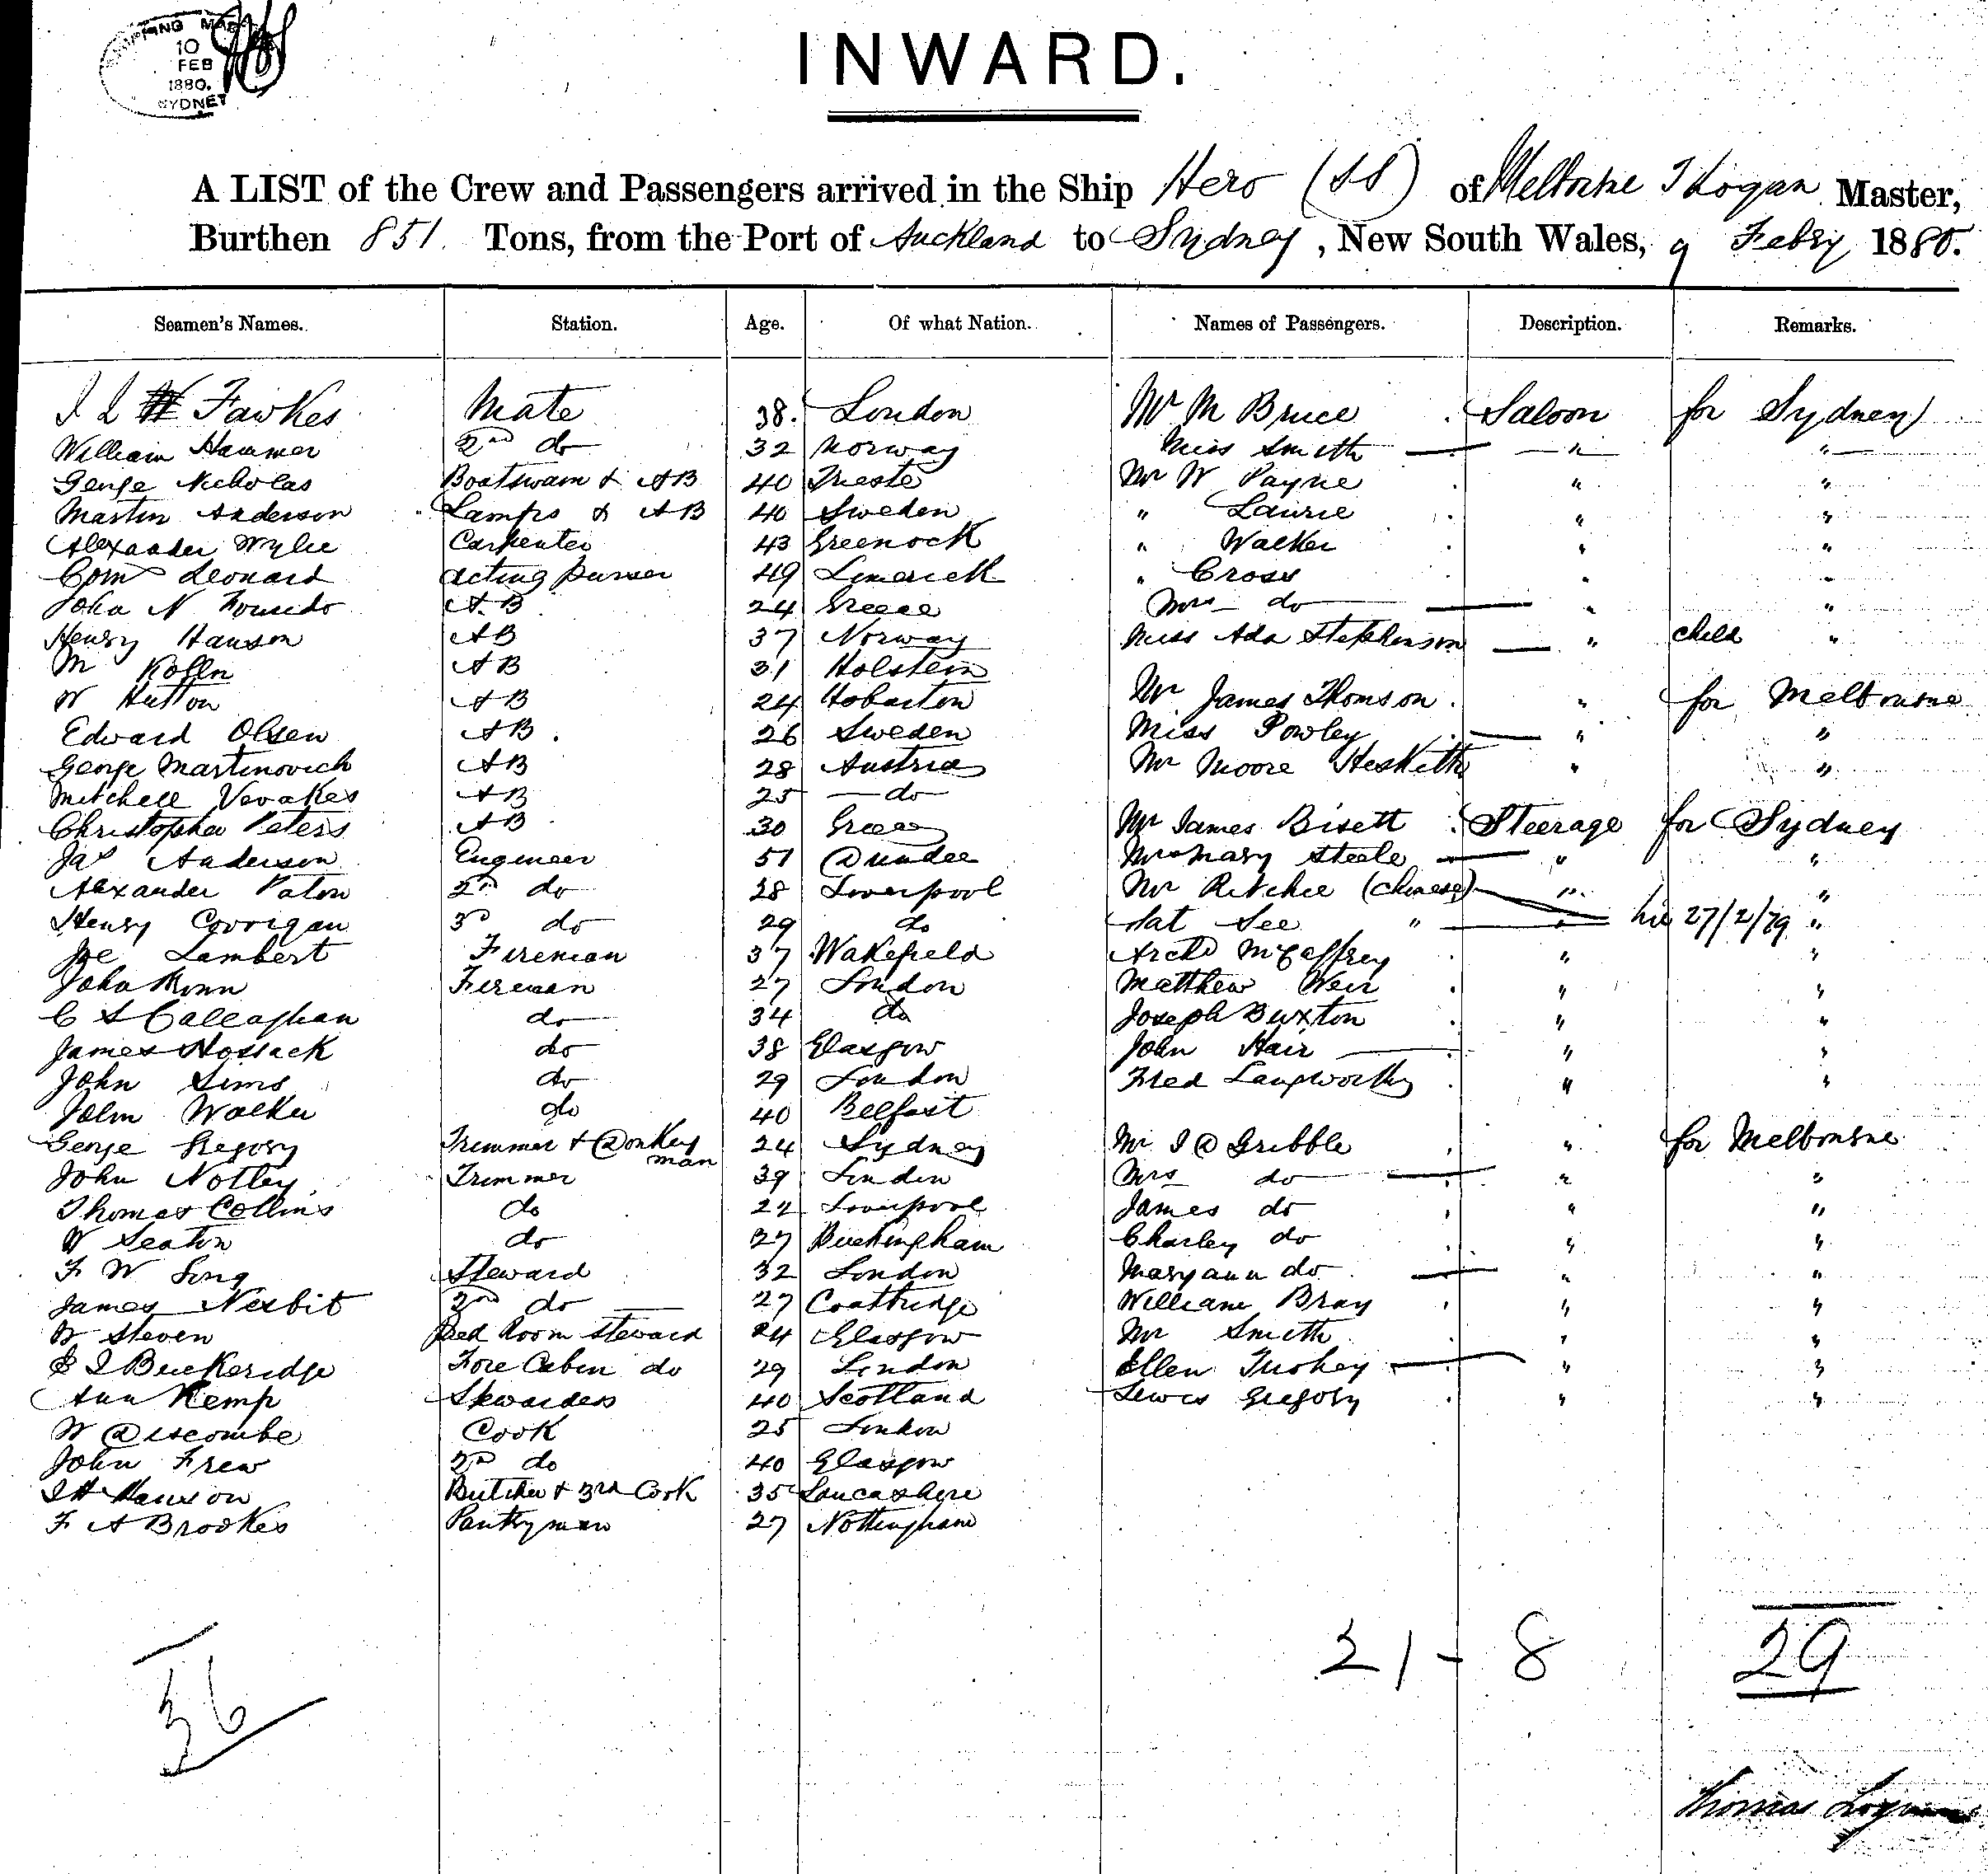 SHIPPING MAS
10
FEB
1880.
SYDNEY
INWARD.
A LIST of the Crew and Passengers arrived in the Ship Hero (SS) of Melborne T Logan Master,
Burthen 851. Tons, from the Port of Auckland to Sydney, New South Wales, 9 Febry 1880.
Seamen's Names. Station. Age. Of what Nation. Names of Passengers. Description. Remarks.
J L Fawkes Mate 38. London Mr M Bruce Saloon for Sydney
William Hammer 2nd do 32 Norway Miss Smith " "
George Nicholas Boatswain & AB 40 Trieste Mr W Payne " "
Martin Anderson Lamps & AB 40 Sweden " Laurie " "
Alexander Wylie Carpenter 43 Greenock " Walker " "
Corns Leonard acting purser 49 Limerick " Cross " "
John N A.B 24 Greece Mrs do " "
Henry Hanson AB 37 Norway Miss Ada Stephenson " child "
M Kolln AB 31 Holstein
W Hutton AB 24 Hobarton Mr James Thomson " for Melbourne
Edward Olsen AB. 26 Sweden Miss Powley " "
George Martinovich AB 28 Austria Mr Moore Hesketh " "
Mitchell Vevakes AB 25 do
Christopher Peters AB 30 Greece Mr James Bisett Steerage for Sydney
Jas Anderson Engineer 51 Dundee Mrs Mary Steele " "
Alexander Paton 2nd do 28 Liverpool Mr Ritchie (Chinese) " "
Henry Corrigan 3rd do 29 do Hat See " " 27/2/79 "
Joe Lambert Fireman 37 Wakefield Archd McCaffrey " "
John Ronn Fireman 27 London Matthew Weir " "
C S Callaghan do 34 do Joseph Buxton " "
James Hossack do 38 Glasgow John Hair " "
John Sims do 29 London Fred Langworthy " "
John Walker do 40 Belfast
George Gregory Trimmer & Donkey man 24 Sydney Mr J D Gribble " for Melbourne
John Notley Trimmer 39 London Mrs do " "
Thomas Collins do 22 Liverpool James do " "
W Seaton do 27 Buckingham Charley do " "
F W Long Steward 32 London Maryann do " "
James Nesbit 2nd do 27 Coatbridge William Bray " "
W Steven Bed Room Steward 24 Glasgow Mr Smith " "
E J Buckeridge Fore Cabin do 29 London Ellen Tuohey " "
Ann Kemp Stewardess 40 Scotland Lewis Gregory " "
W Discombe Cook 25 London
John Frew 2nd do 40 Glasgow
J H Manson Butcher & 3rd Cook 35 Lancashire
F A Brookes Pantryman 27 Nottingham
36 21 - 8 29
Thomas Logan